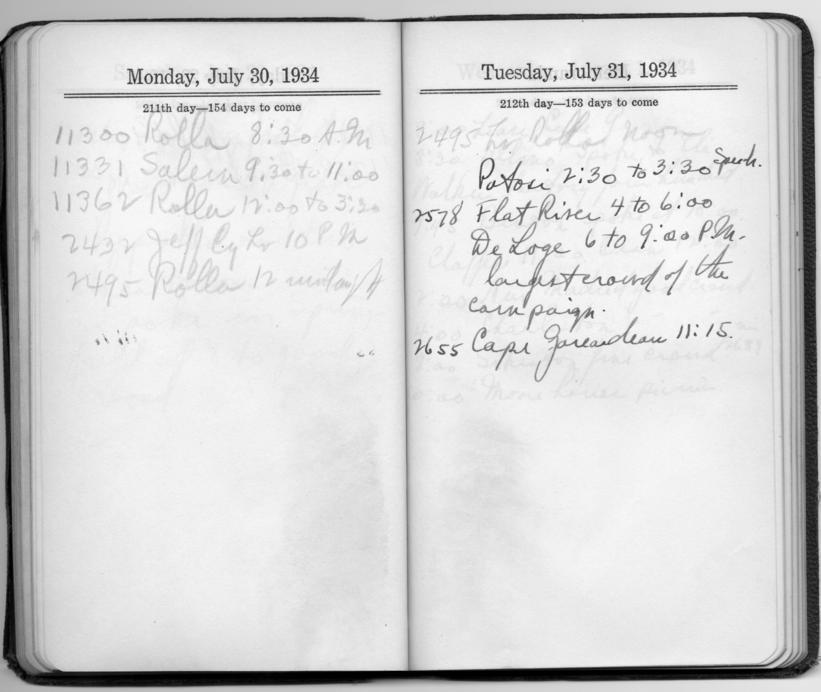 Monday, July 30, 1934
211th day—154 days to come
11300 Rolla 8:30 A.M
11331 Salem 9:30 to 11:00
11362 Rolla 12:00 to 3:30
2432 Jeff Cy Lv 10 P M
2495 Rolla 12 midnight
Tuesday, July 31, 1934
212th day—153 days to come
2495 Lv Rolla Noon
Potosi 2:30 to 3:30 Speech.
2578 Flat River 4 to 6:00
De Loge 6 to 9:00 P.M.
largest crowd of the
campaign.
2655 Cape Gireardeau 11:15.